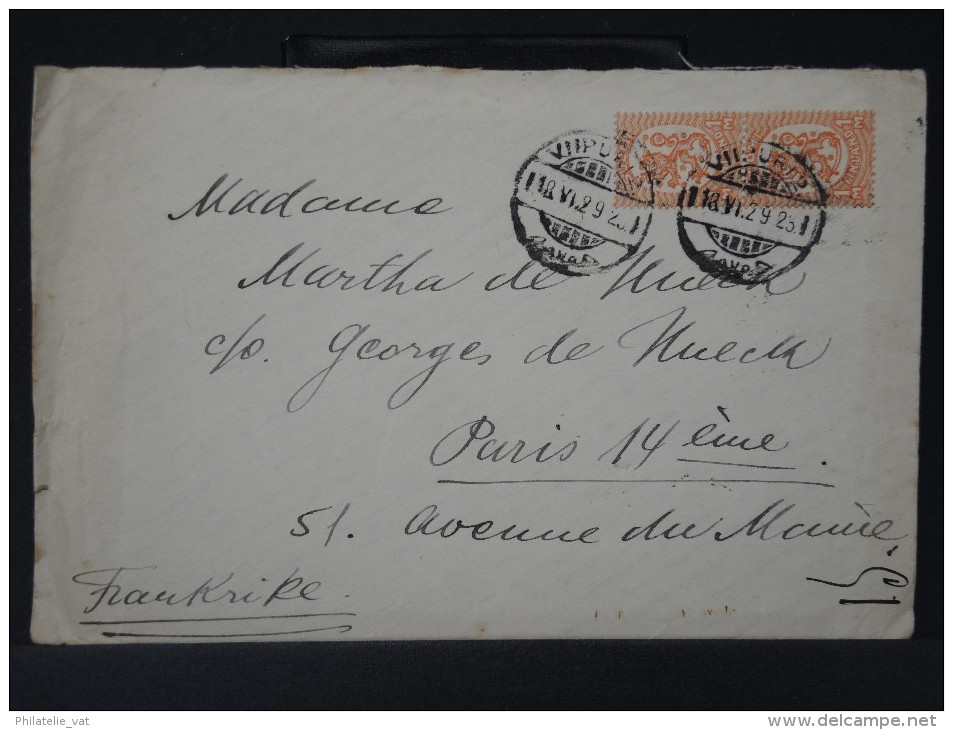 VIIPURI
18.VI.29 23.
VIIPURI
18.VI.29 23.
1 M
1 M
Madame
Martha de Hueck
c/o. Georges de Hueck
Paris 14 ème.
51. Avenue du Maine.
Frankrike.
Philatelie_vat
www.delcampe.net